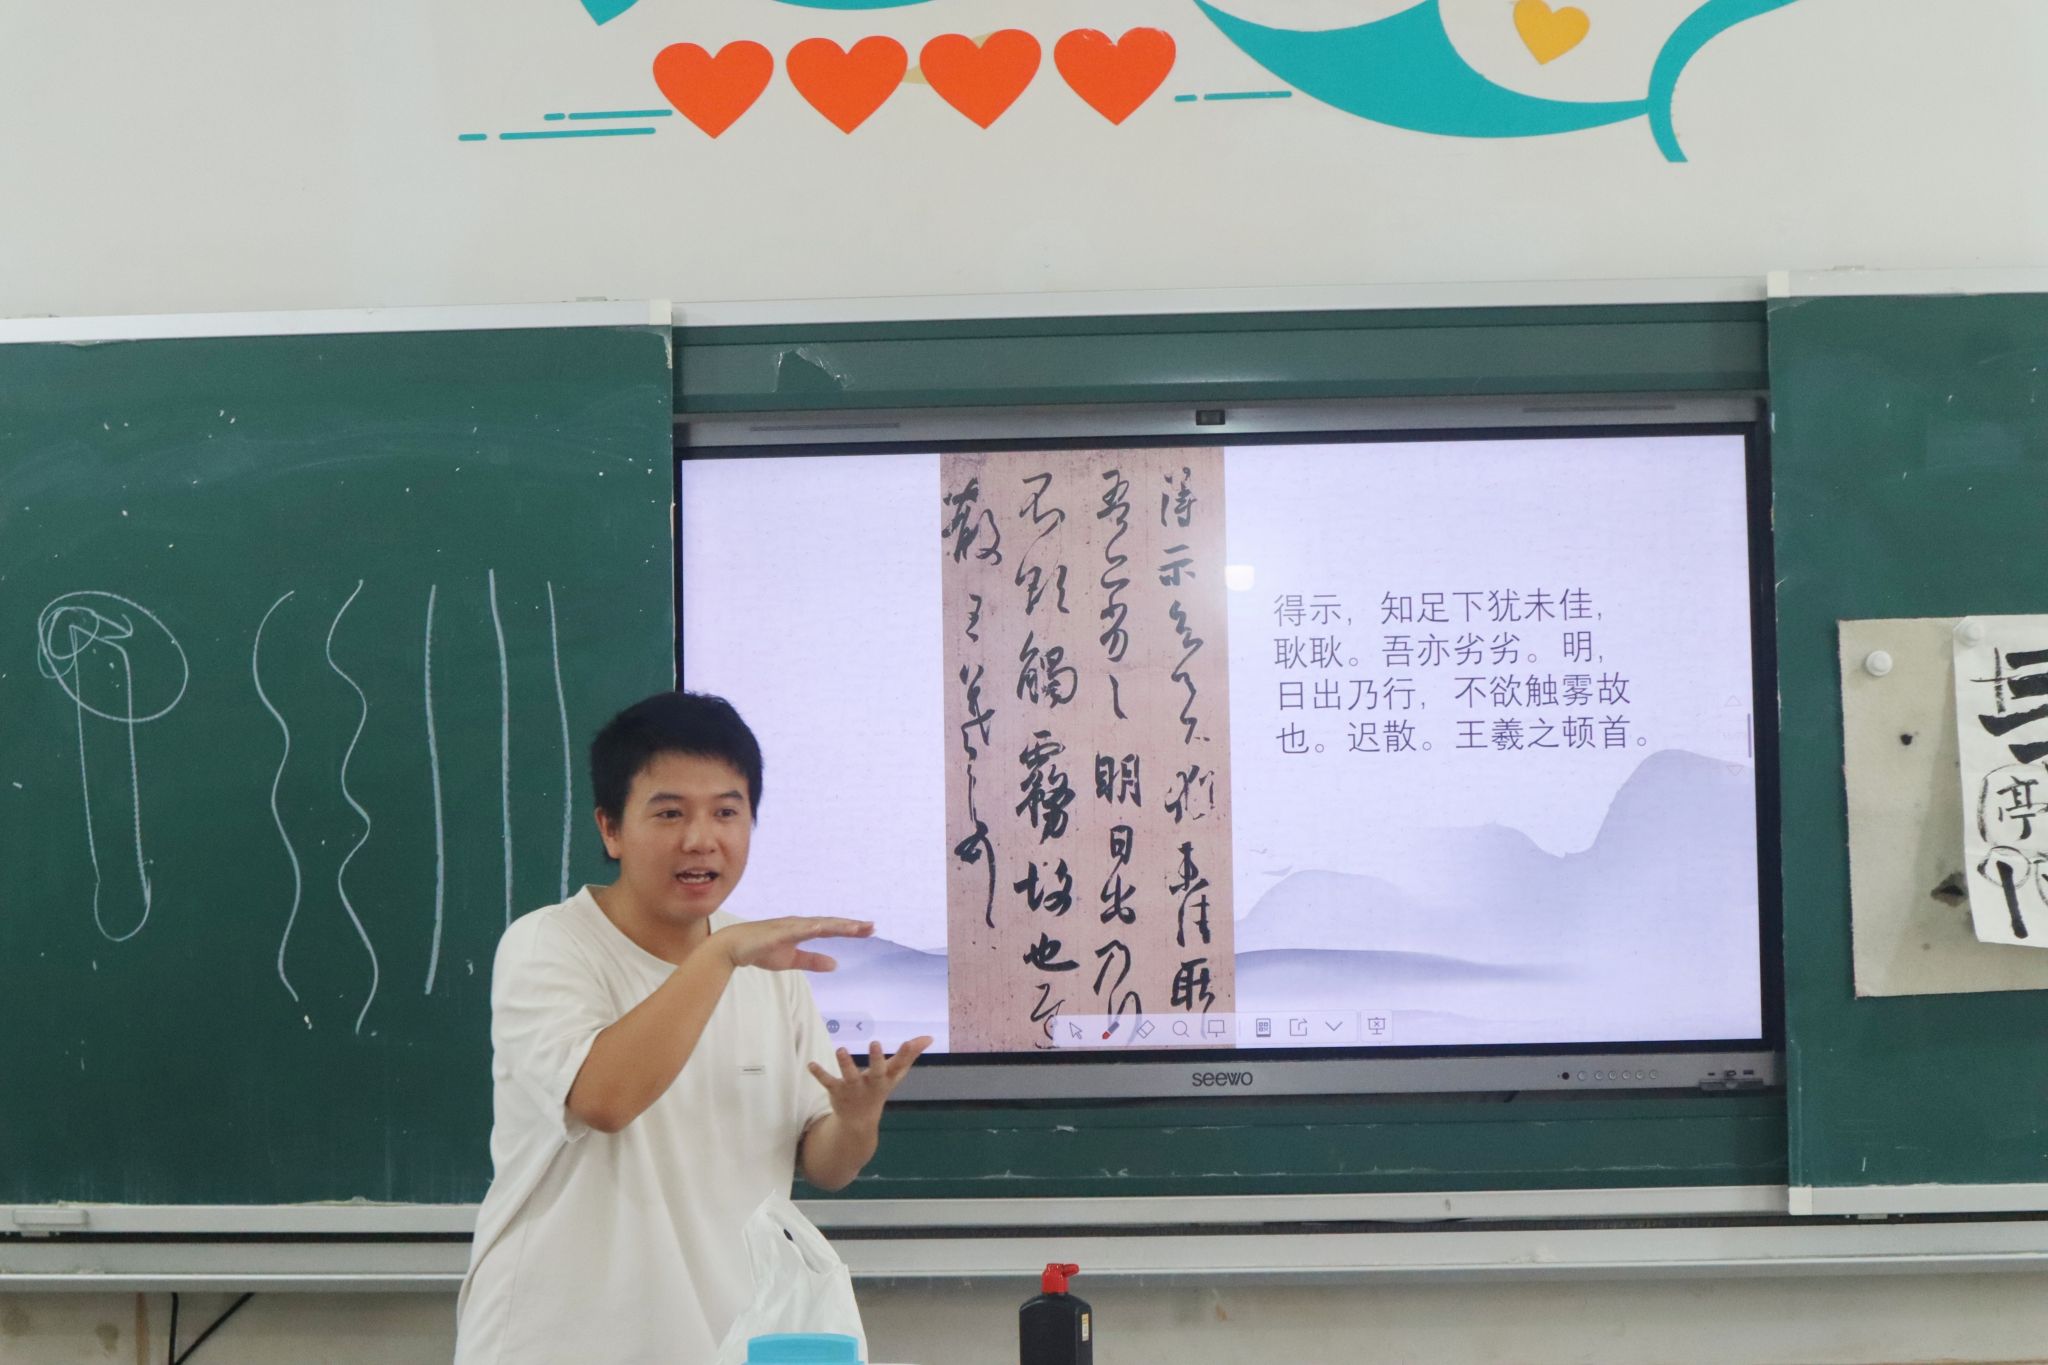 得示，知足下犹未佳，
耿耿。吾亦劣劣。明，
日出乃行，不欲触雾故
也。迟散。王羲之顿首。
得示知足下猶未佳耿
吾亦劣劣明日出乃行
不欲觸霧故也
散王羲之頓首
seewo
亭